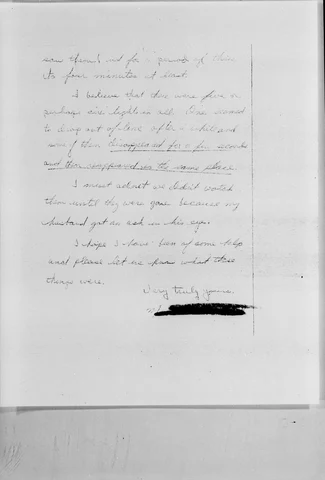 saw them and for a period of three
to four minutes at least.
I believe that there were five or
perhaps six lights in all. One seemed
to drop out of line after a while and
some of them disappeared for a few seconds
and then reappeared in the same place.
I must admit we didn't watch
them until they were gone because my
husband got an ash in his eye.
I hope I have been of some help
and please let me know what these
things were.
Very truly yours,